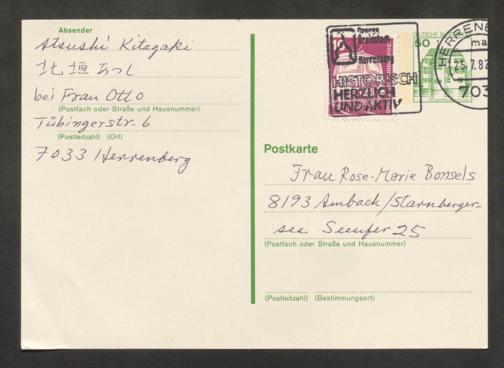 Absender
Atsushi Kitagaki
北垣 あつし
bei Frau Otto
(Postfach oder Straße und Hausnummer)
Tübingerstr. 6
(Postleitzahl) (Ort)
7033 Herrenberg
Herrenberg
HISTORISCH
HERZLICH
UND AKTIV
50
DEUTSCHE
HERRENB
25.7.82
703
Postkarte
Frau Rose-Marie Bonsels
8193 Ambach/Starnberger-
see Seeufer 25
(Postfach oder Straße und Hausnummer)
(Postleitzahl) (Bestimmungsort)